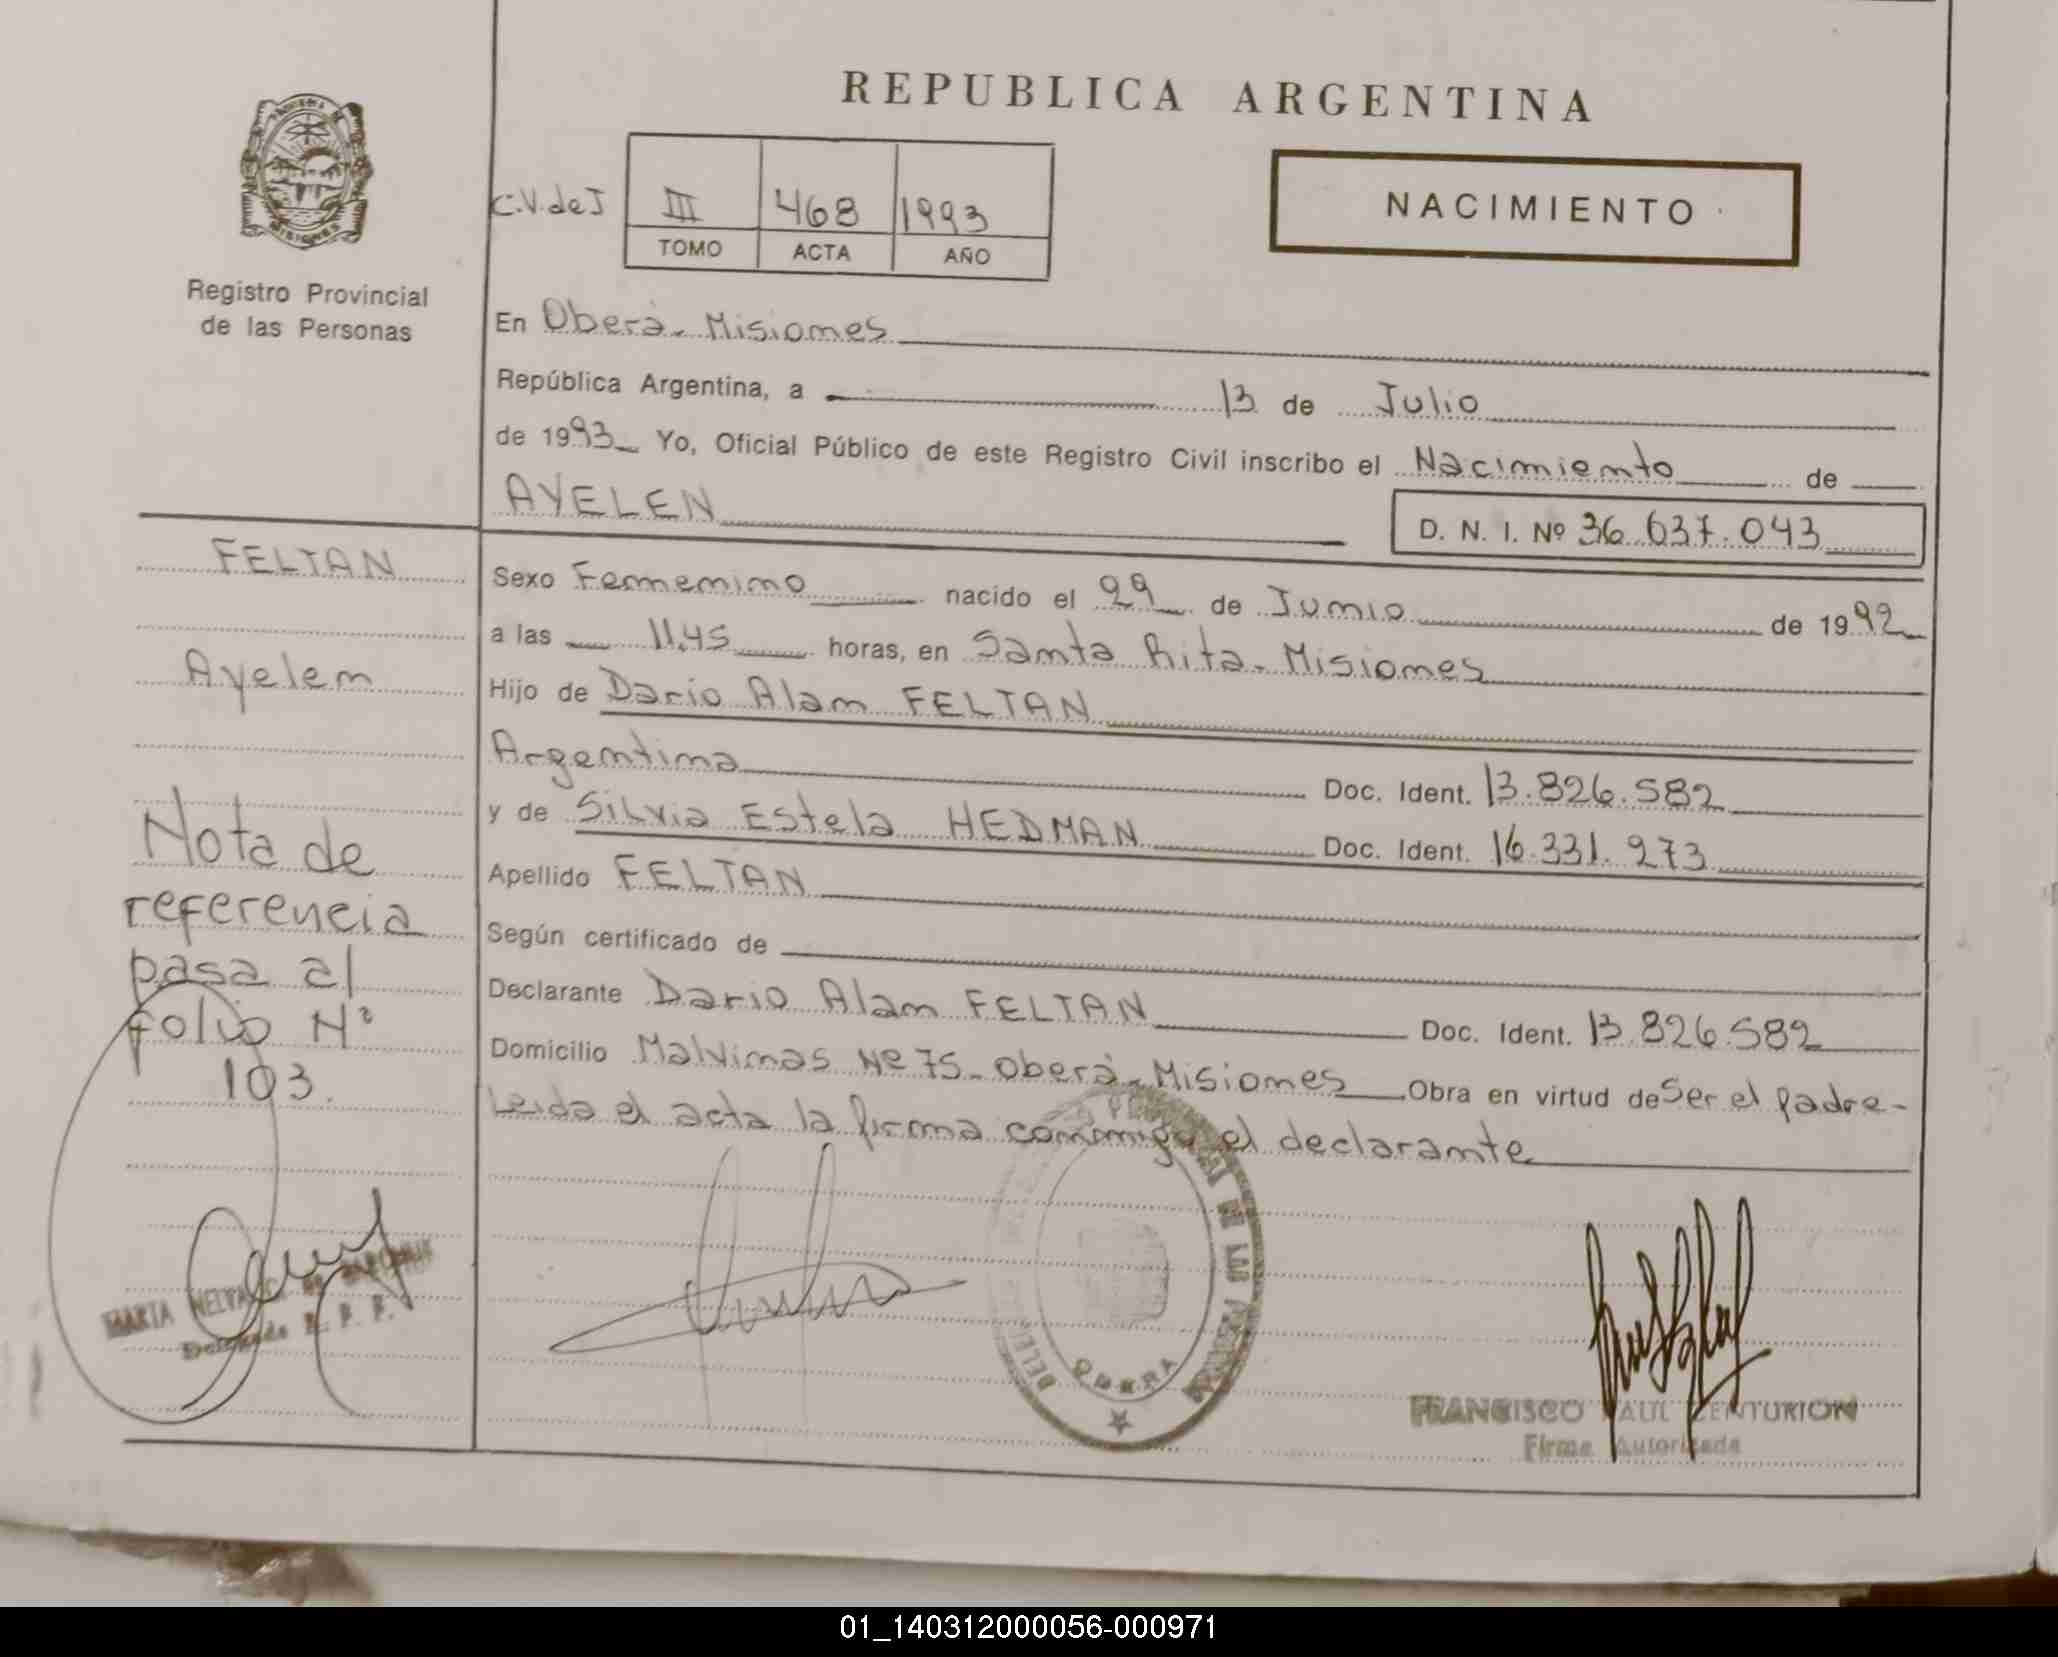 REPUBLICA ARGENTINA
C.V. de J III 468 1993
TOMO ACTA AÑO
NACIMIENTO
MISIONES
Registro Provincial
de las Personas
En Oberá - Misiones
República Argentina, a 13 de Julio
de 1993 Yo, Oficial Público de este Registro Civil inscribo el Nacimiento de
AYELEN
D. N. I. Nº 36.637.043
FELTAN
Ayelen
Nota de
referencia
pasa al
folio Nº
103.
MARIA
Delegada R. P. P.
Sexo Femenino nacido el 29 de Junio de 1992
a las 11,45 horas, en Santa Rita - Misiones
Hijo de Dario Alan FELTAN
Argentina Doc. Ident. 13.826.582
y de Silvia Estela HEDMAN Doc. Ident. 16.331.273
Apellido FELTAN
Según certificado de
Declarante Dario Alan FELTAN Doc. Ident. 13.826.582
Domicilio Malvinas Nº 75 - Oberá - Misiones Obra en virtud de Ser el padre -
Leida el acta la firma conmigo el declarante
OBERA
FRANCISCO RAUL CENTURION
Firma Autorizada
01_140312000056-000971